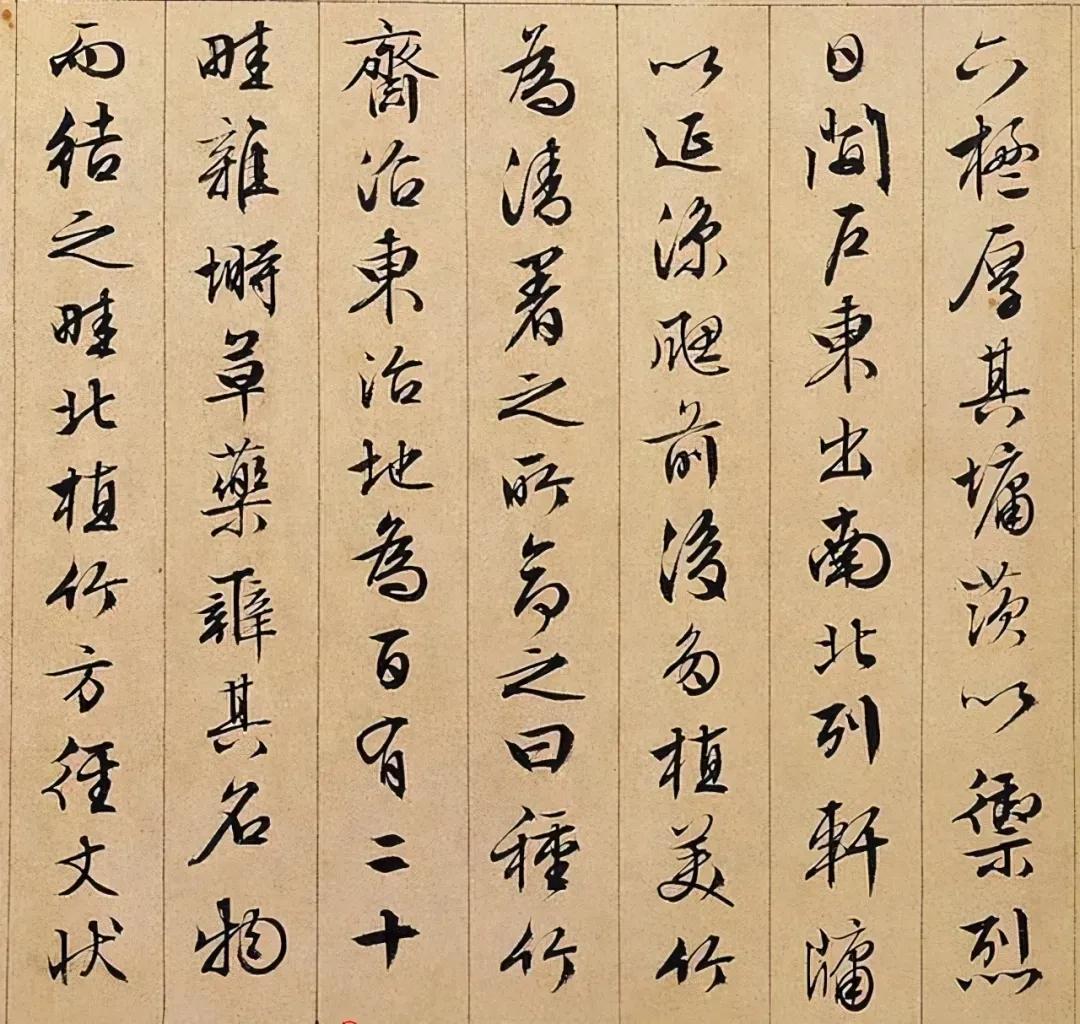 六楹厚其墉茨以禦烈
日開戶東出南北列軒牖
以延涼颸前後多植美竹
為清署之所命之曰種竹
齋沼東治地為百有二十
畦雜塒草藥辨其名物
而結之畦北植竹方徑丈狀